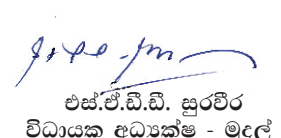 එස්.ඒ.ඩී.ඩී. සුරවීර
විධායක අධ්‍යක්ෂ - මුදල්